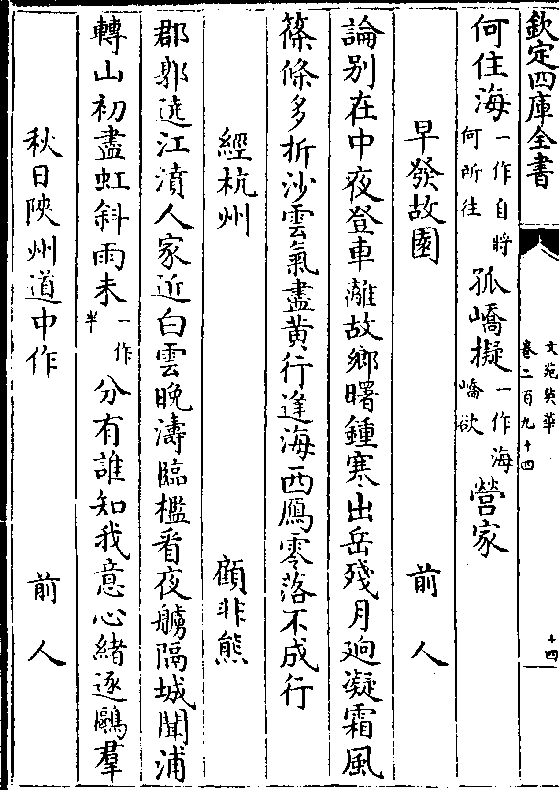 欽定四庫全書
文苑英華
卷二百九十四
十四
何住海一作自將何所往孤嶠擬一作海嶠欲營家
早發故園
前人
論别在中夜登車離故鄉曙鍾寒出岳殘月逈凝霜風
篠條多折沙雲氣盡黄行逢海西鴈零落不成行
經杭州
顧非熊
郡郭遶江濆人家近白雲晚濤臨檻看夜艣隔城聞浦
轉山初盡虹斜雨未一作半分有誰知我意心緒逐鷗羣
秋日陜州道中作
前人